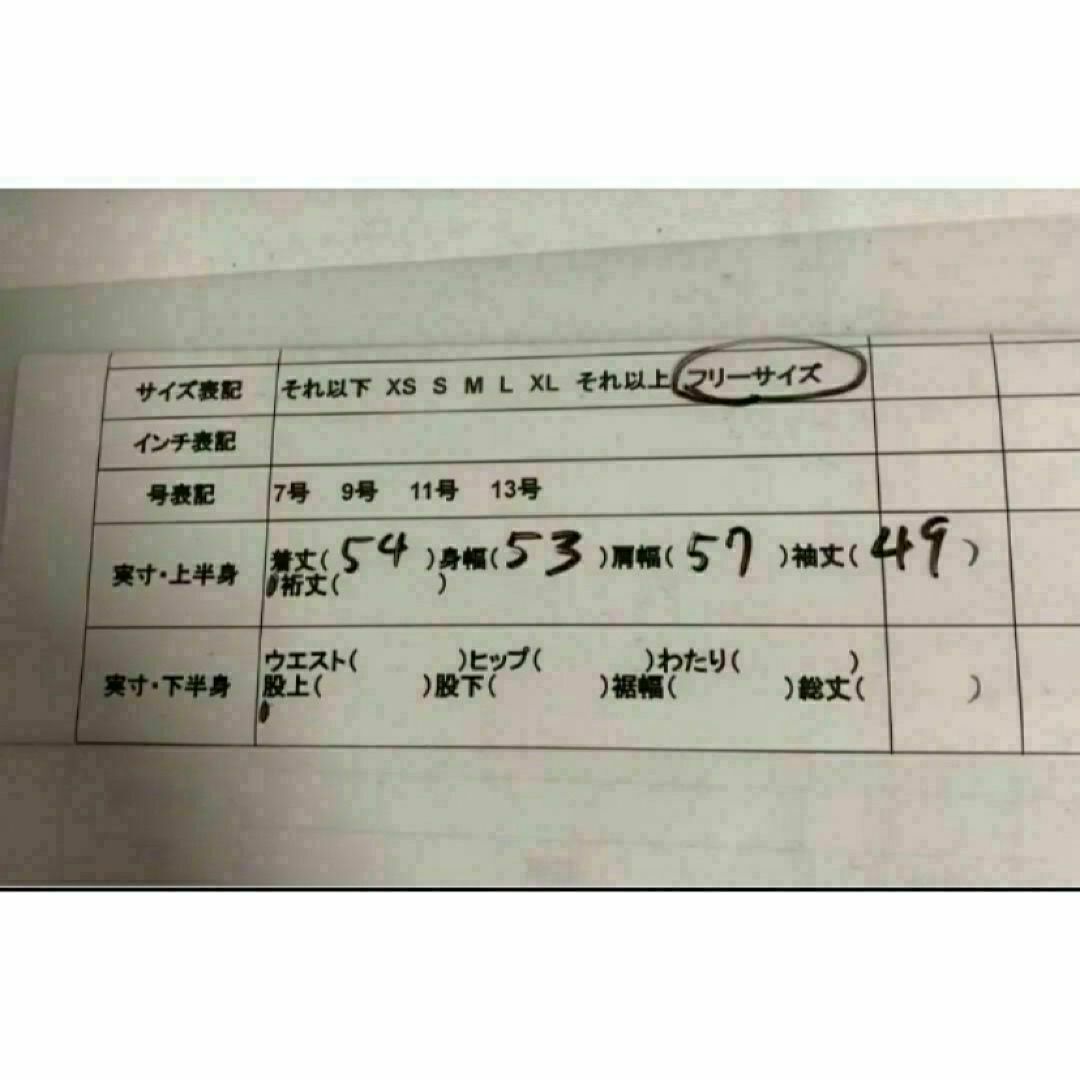 サイズ表記 それ以下 XS S M L XL それ以上 フリーサイズ
インチ表記
号表記 7号 9号 11号 13号
実寸・上半身 着丈(54)身幅(53)肩幅(57)袖丈(49)
裄丈( )
実寸・下半身 ウエスト( )ヒップ( )わたり( )
股上( )股下( )裾幅( )総丈( )